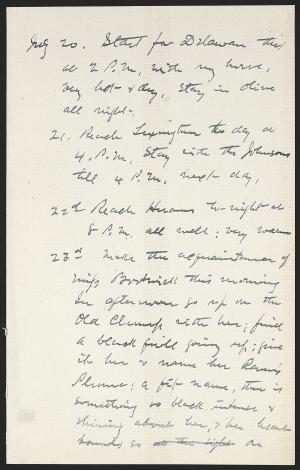 July 20. Start for Delaware this
at 2 P.M. with my horse,
very hot & dry, stay in olive
all night.
21. Reach Lexington to day at
4. P.M. Stay with the Johnsons
till 4 P.M. next day,
22d Reach Homes to-night at
8 P.M. all well; very warm
23d Make the acquaintance of
Miss this morning
In afternoon go up on the
Old Clump with her; find
a black quill going up; give
it her & name her Raven's
Plume; a fit name, there is
something so black, intense &
shining about her, & her heart
bounds so at the sight on